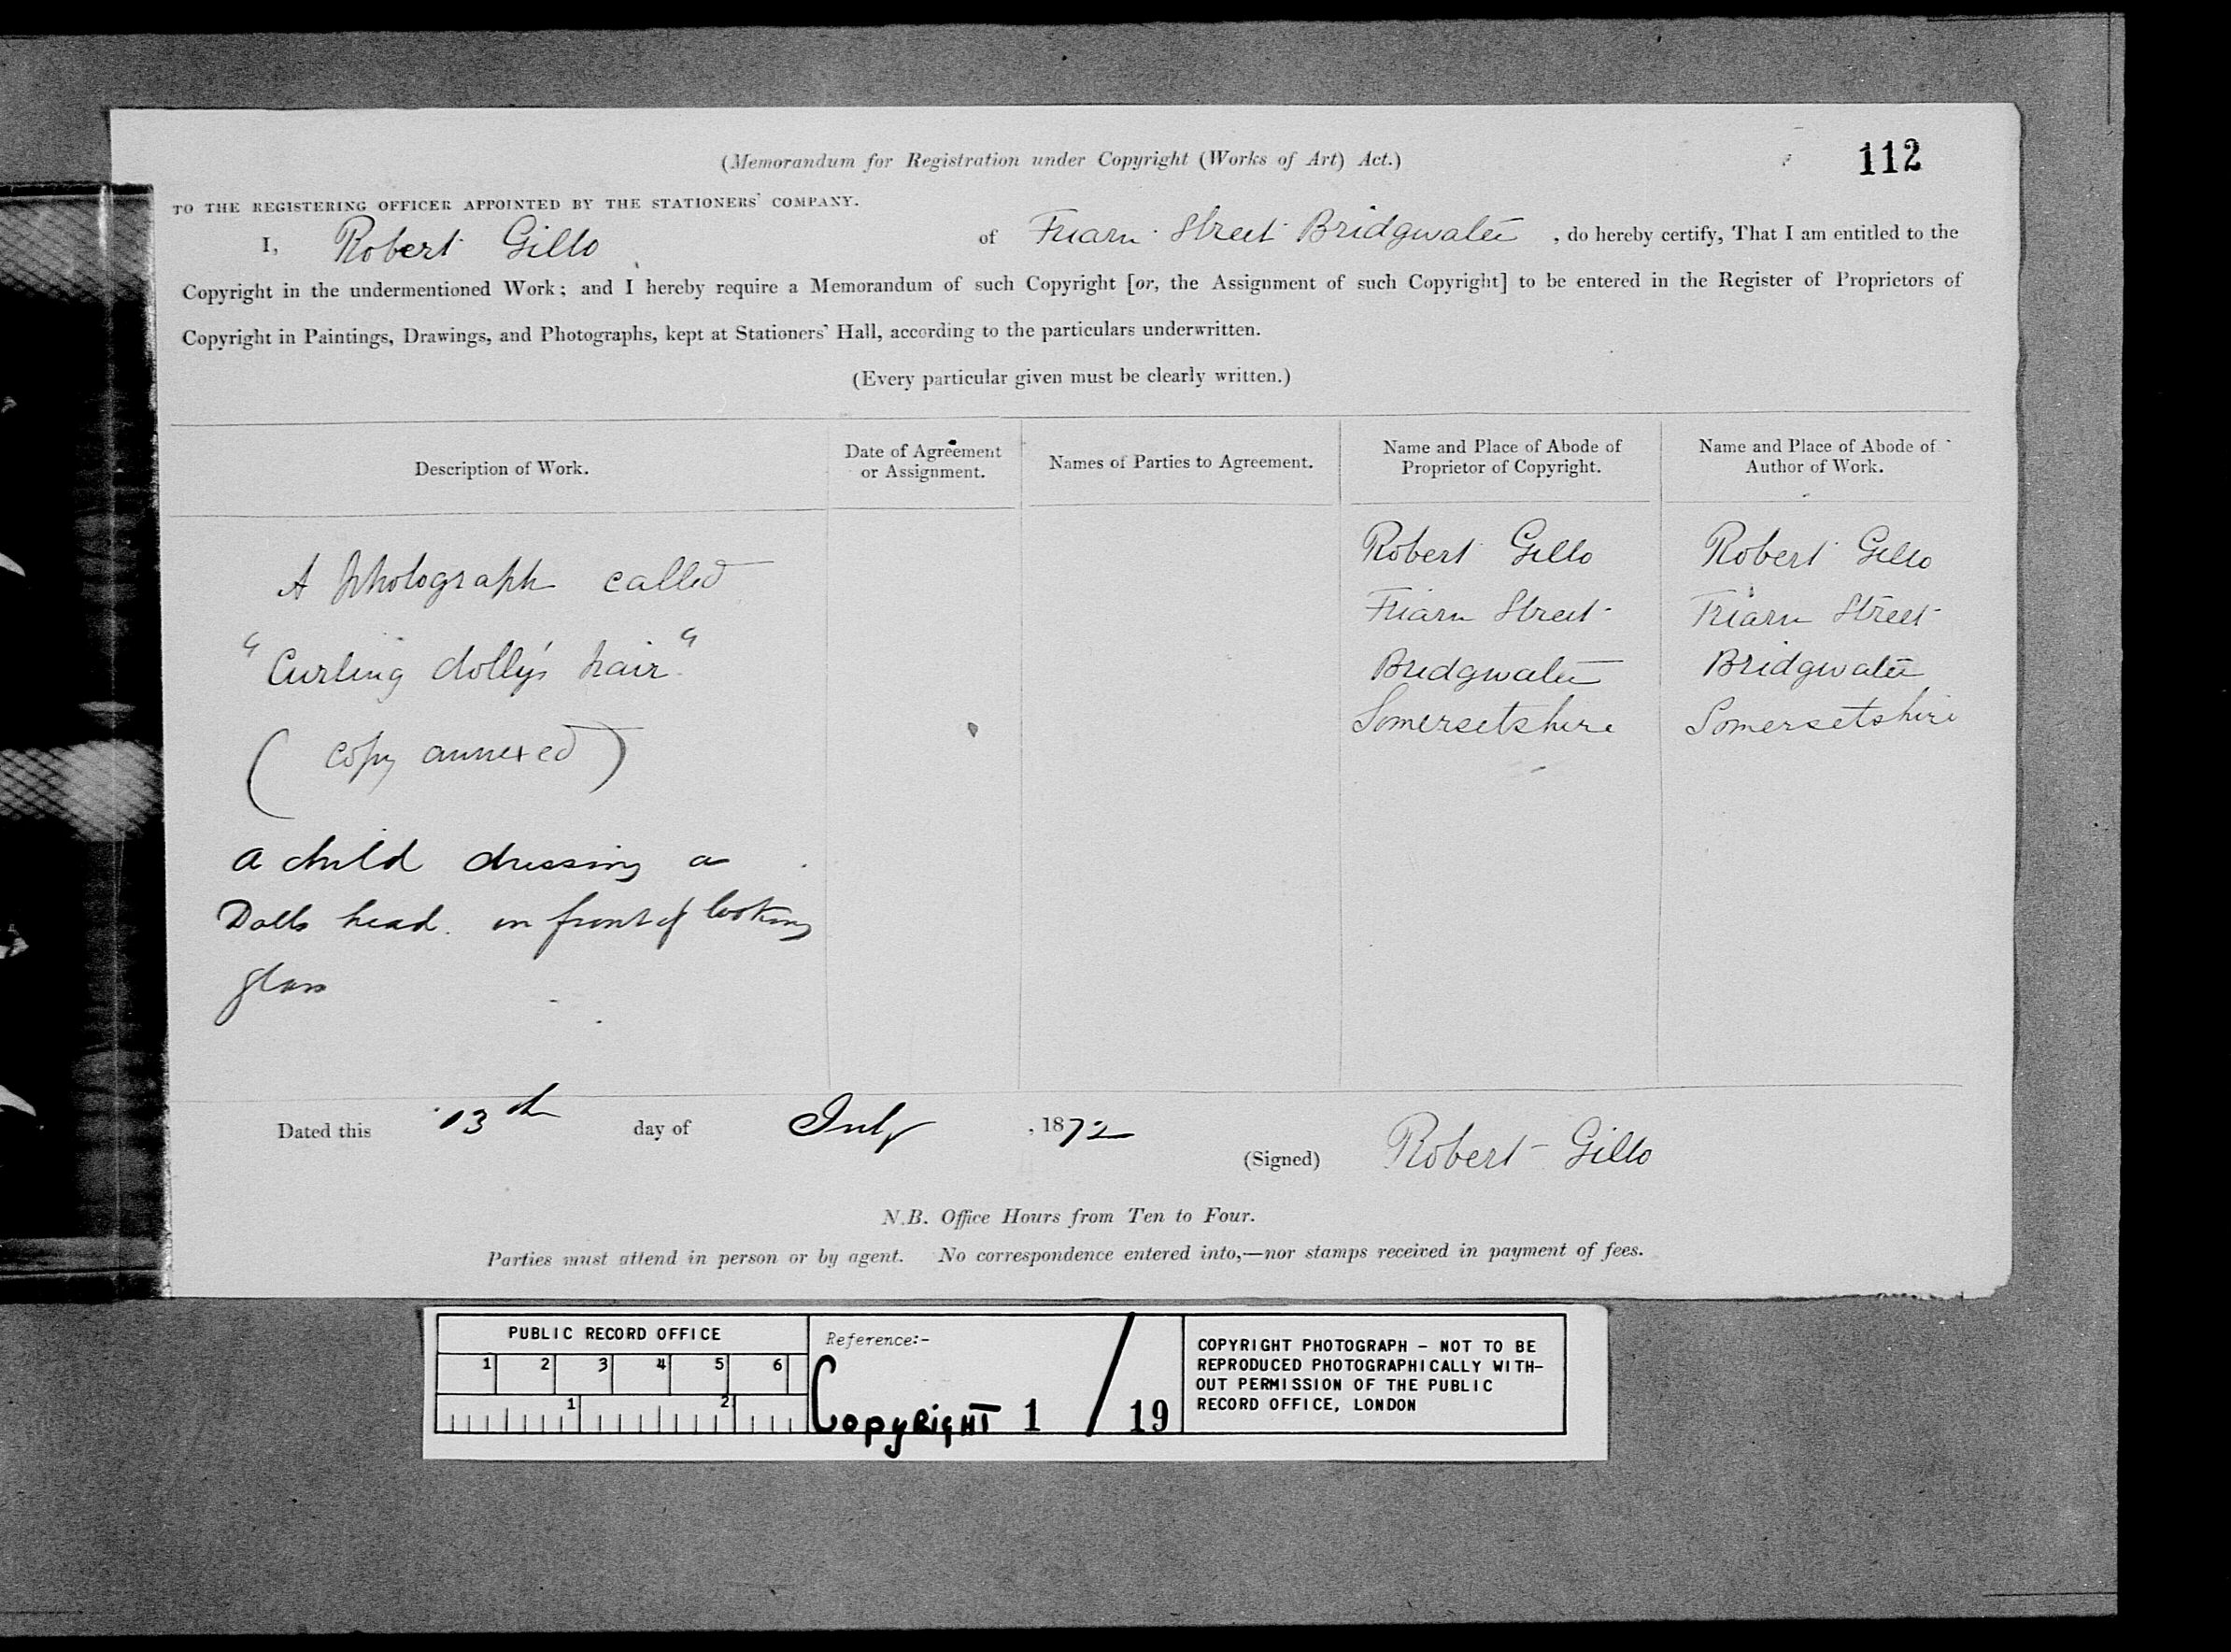 (Memorandum for Registration under Copyright (Works of Art) Act.)
112
TO THE REGISTERING OFFICER APPOINTED BY THE STATIONERS' COMPANY.
I, Robert Gillo of Friarn Street Bridgwater, do hereby certify, That I am entitled to the
Copyright in the undermentioned Work; and I hereby require a Memorandum of such Copyright [or, the Assignment of such Copyright] to be entered in the Register of Proprietors of
Copyright in Paintings, Drawings, and Photographs, kept at Stationers' Hall, according to the particulars underwritten.
(Every particular given must be clearly written.)
Description of Work.
Date of Agreement
or Assignment.
Names of Parties to Agreement.
Name and Place of Abode of
Proprietor of Copyright.
Name and Place of Abode of
Author of Work.
A photograph called
"Curling dolly's hair"
(copy annexed)
a child dressing a
Dolls head. in front of looking
glass
Robert Gillo
Friarn Street
Bridgwater
Somersetshire
Robert Gillo
Friarn Street
Bridgwater
Somersetshire
Dated this 13th day of July, 1872
(Signed) Robert Gillo
N.B. Office Hours from Ten to Four.
Parties must attend in person or by agent. No correspondence entered into,—nor stamps received in payment of fees.
PUBLIC RECORD OFFICE
1 2 3 4 5 6
1 2
Reference:-
Copyright 1 / 19
COPYRIGHT PHOTOGRAPH - NOT TO BE
REPRODUCED PHOTOGRAPHICALLY WITH-
OUT PERMISSION OF THE PUBLIC
RECORD OFFICE, LONDON